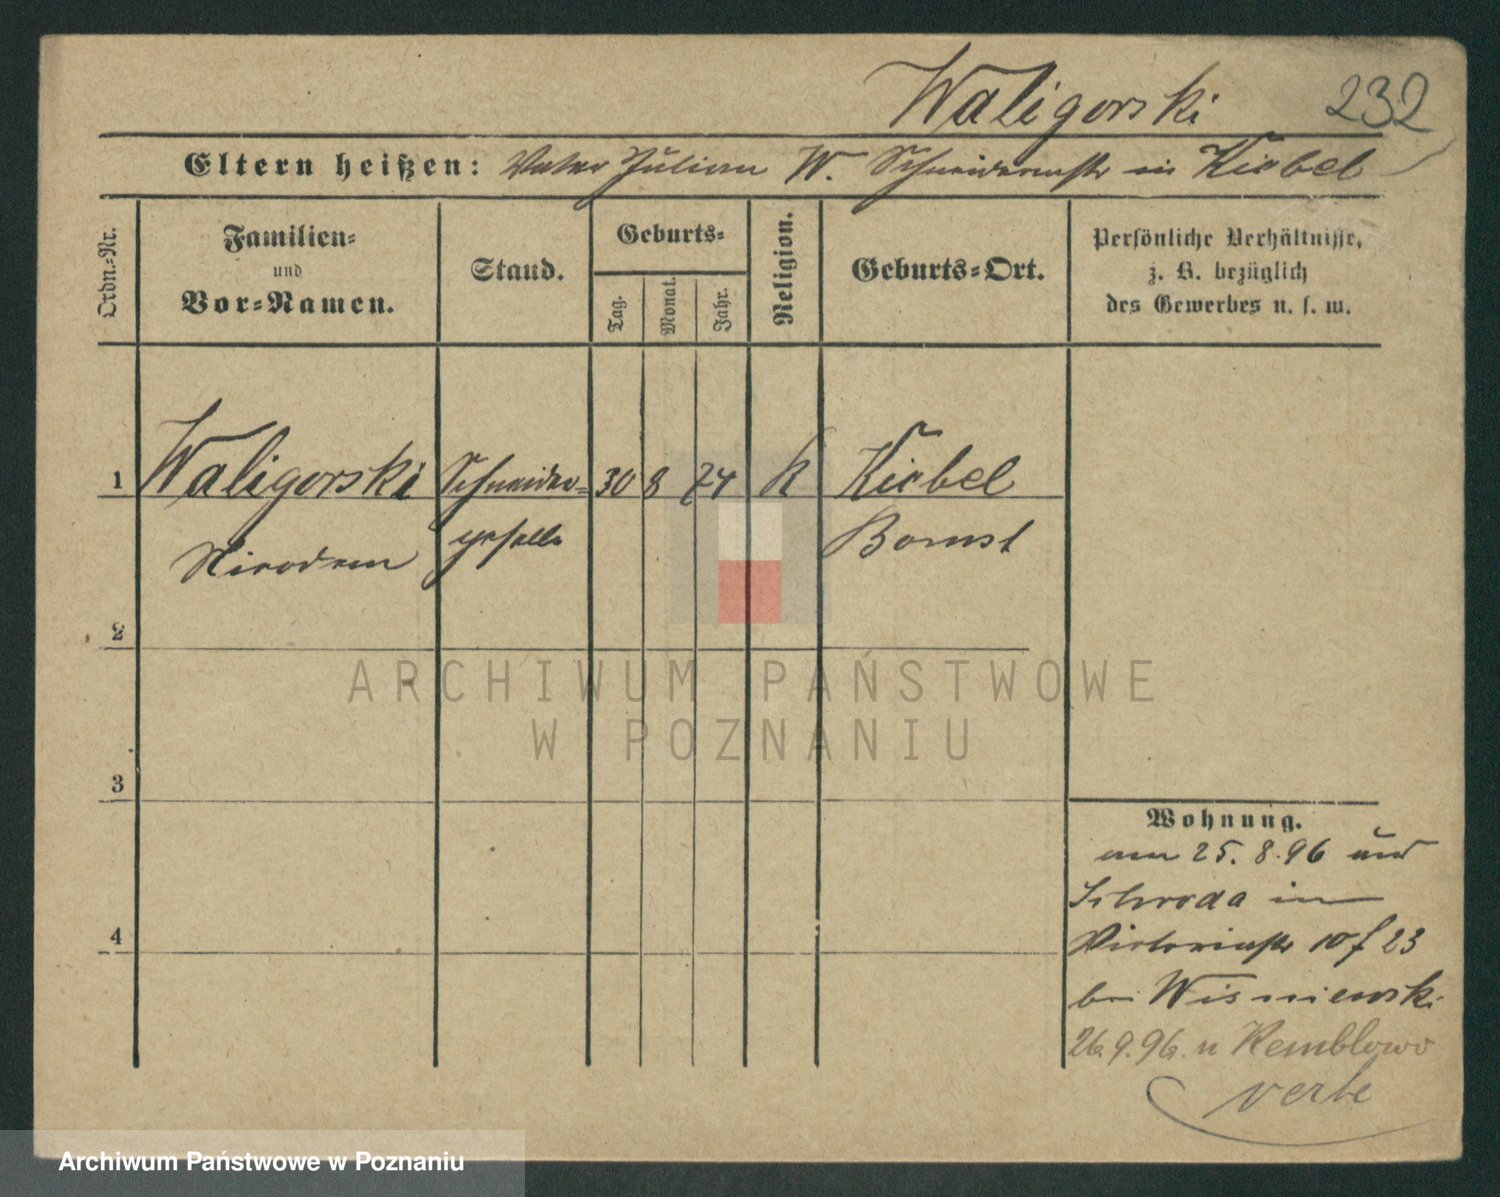 Waligorski 232
Eltern heißen: Vater Julian W. Schneidermstr in Kiebel
Ordn.-Nr.
Familien-
und
Vor-Namen.
Stand.
Geburts-
Tag.
Monat.
Jahr.
Religion.
Geburts-Ort.
Persönliche Verhältnisse,
z. B. bezüglich
des Gewerbes u. s. w.
1 Waligorski Schneider- 30 8 74 K Kiebel
Nicodem geselle Bomst
2
3
4
Wohnung.
am 25. 8. 96 aus
Schroda in
Victoriastr 10 f 23
bei Wisniewski
26.9.96. n Kemblowo
verte
ARCHIWUM PAŃSTWOWE
W POZNANIU
Archiwum Państwowe w Poznaniu